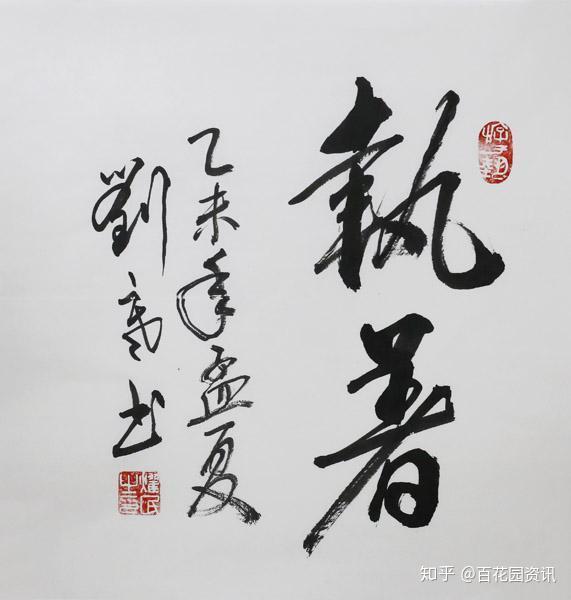 執著
乙未年孟夏
劉
书
知乎 @百花园资讯